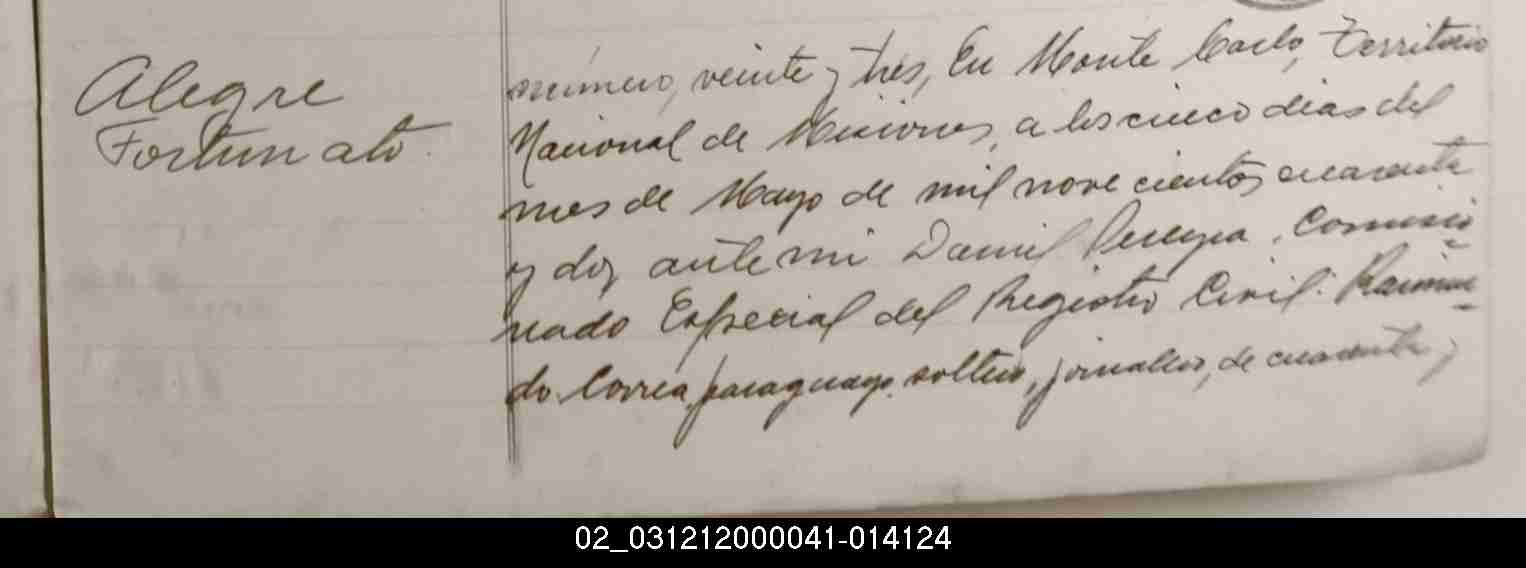 Alegre
Fortunato.
número, veinte y tres, En Monte Carlo, Territorio
Nacional de Misiones, a los cinco dias del
mes de Mayo de mil novecientos cuarenta
y dos, ante mi Daniel Pereyra, Comisio
nado Especial del Registro Civil: Raimun
do Correa, paraguayo, soltero, jornalero, de cuarenta y
02_031212000041-014124